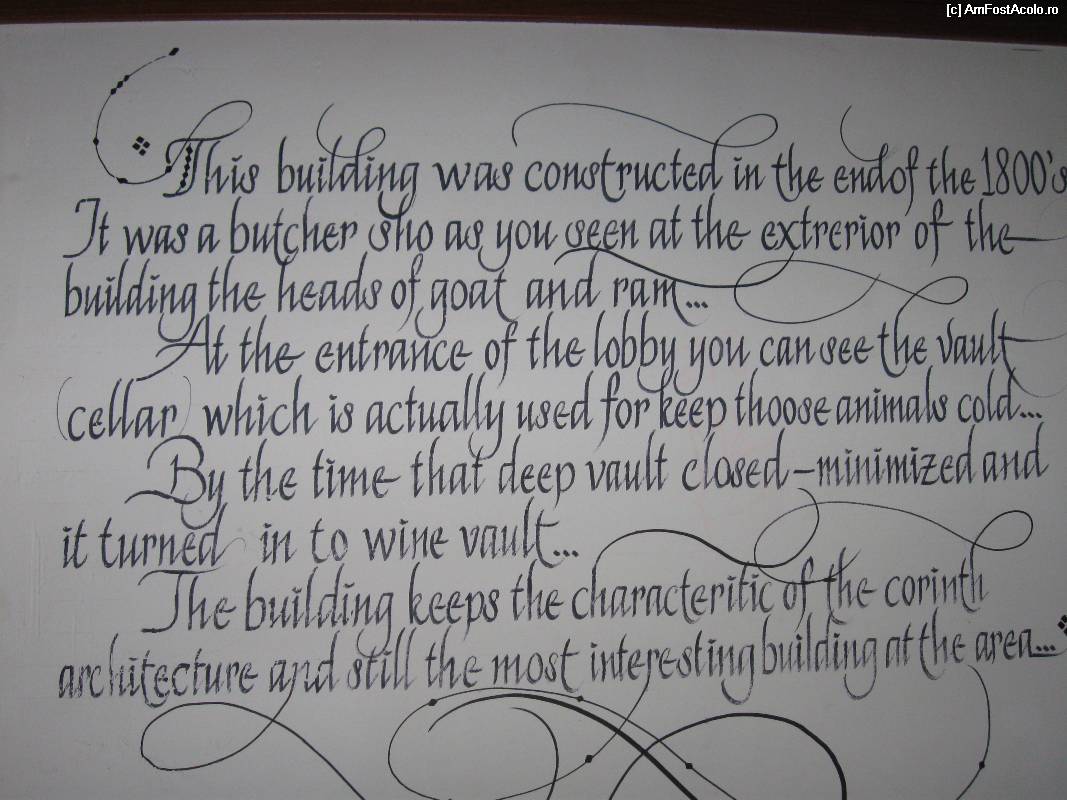 [c] AmFostAcolo.ro
This building was constructed in the end of the 1800's
It was a butcher sho as you seen at the extrerior of the
building the heads of goat and ram...
At the entrance of the lobby you can see the vault
(cellar) which is actually used for keep thoose animals cold...
By the time that deep vault closed-minimized and
it turned in to wine vault...
The building keeps the characteritic of the corinth
architecture and still the most interesting building at the area...